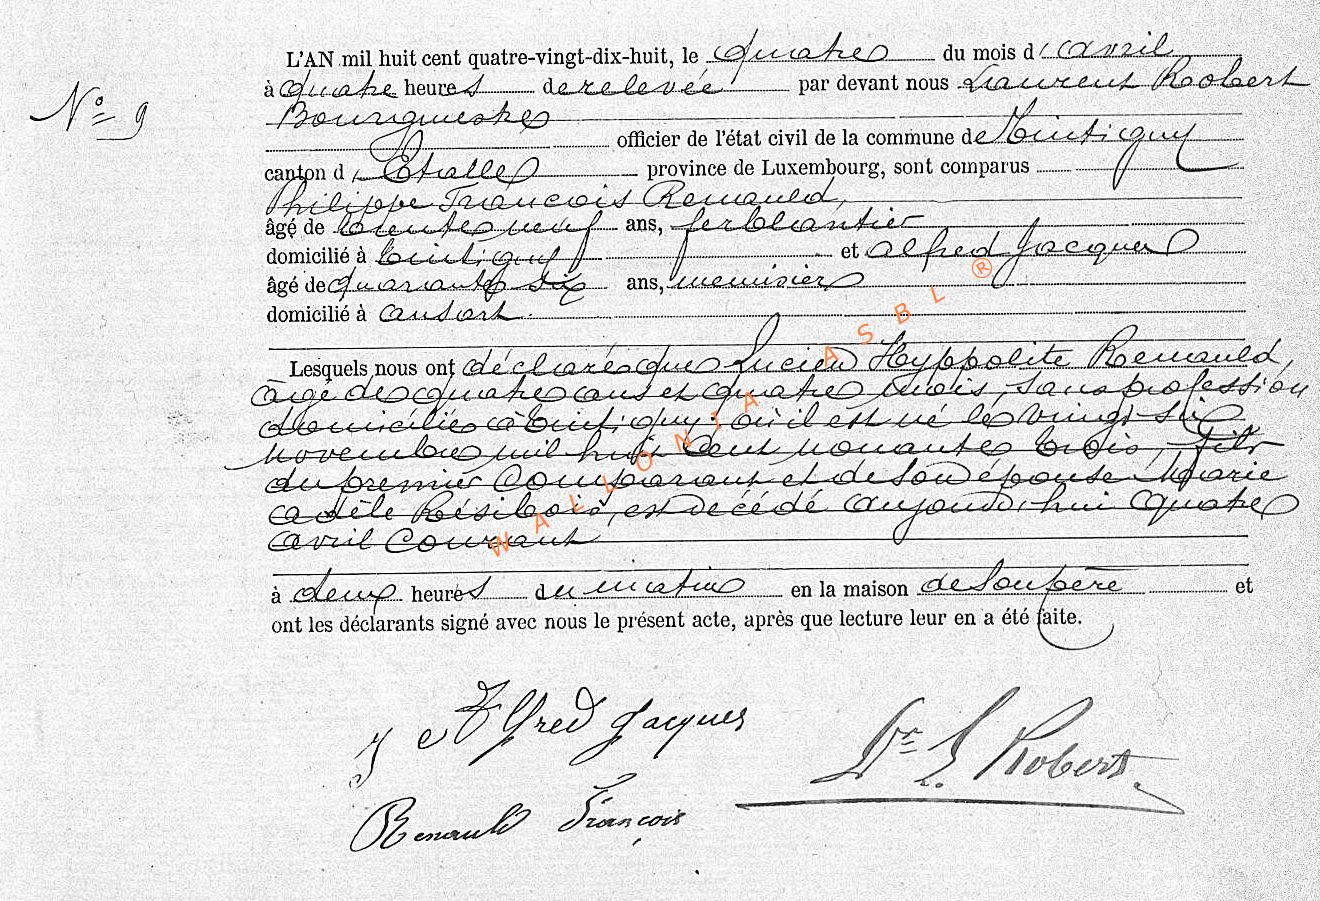 L'AN mil huit cent quatre-vingt-dix-huit, le quatre du mois d'avril
à quatre heures de relevée par devant nous Laurent Robert
N° 9
Bourgmestre
officier de l'état civil de la commune de Tintigny
canton d'Etalle province de Luxembourg, sont comparus
Philippe François Renauld,
âgé de trente neuf ans, ferblantier
domicilié à Tintigny et Alfred Jacques
âgé de quarante six ans, menuisier
domicilié à Ansart.
Lesquels nous ont déclaré que Lucien Hyppolite Renauld,
âgé de quatre ans et quatre mois, sans profession
domicilié à Tintigny où il est né le vingt six
novembre mil huit cent nonante trois, fils
du premier comparant et de son épouse Marie
Adèle Résibois, est décédé aujourd'hui quatre
avril courant
à deux heures du matin en la maison de son père et
ont les déclarants signé avec nous le présent acte, après que lecture leur en a été faite.
Alfred Jacques
Dr L. Robert
Renauld François
WALLONIA ASBL ®